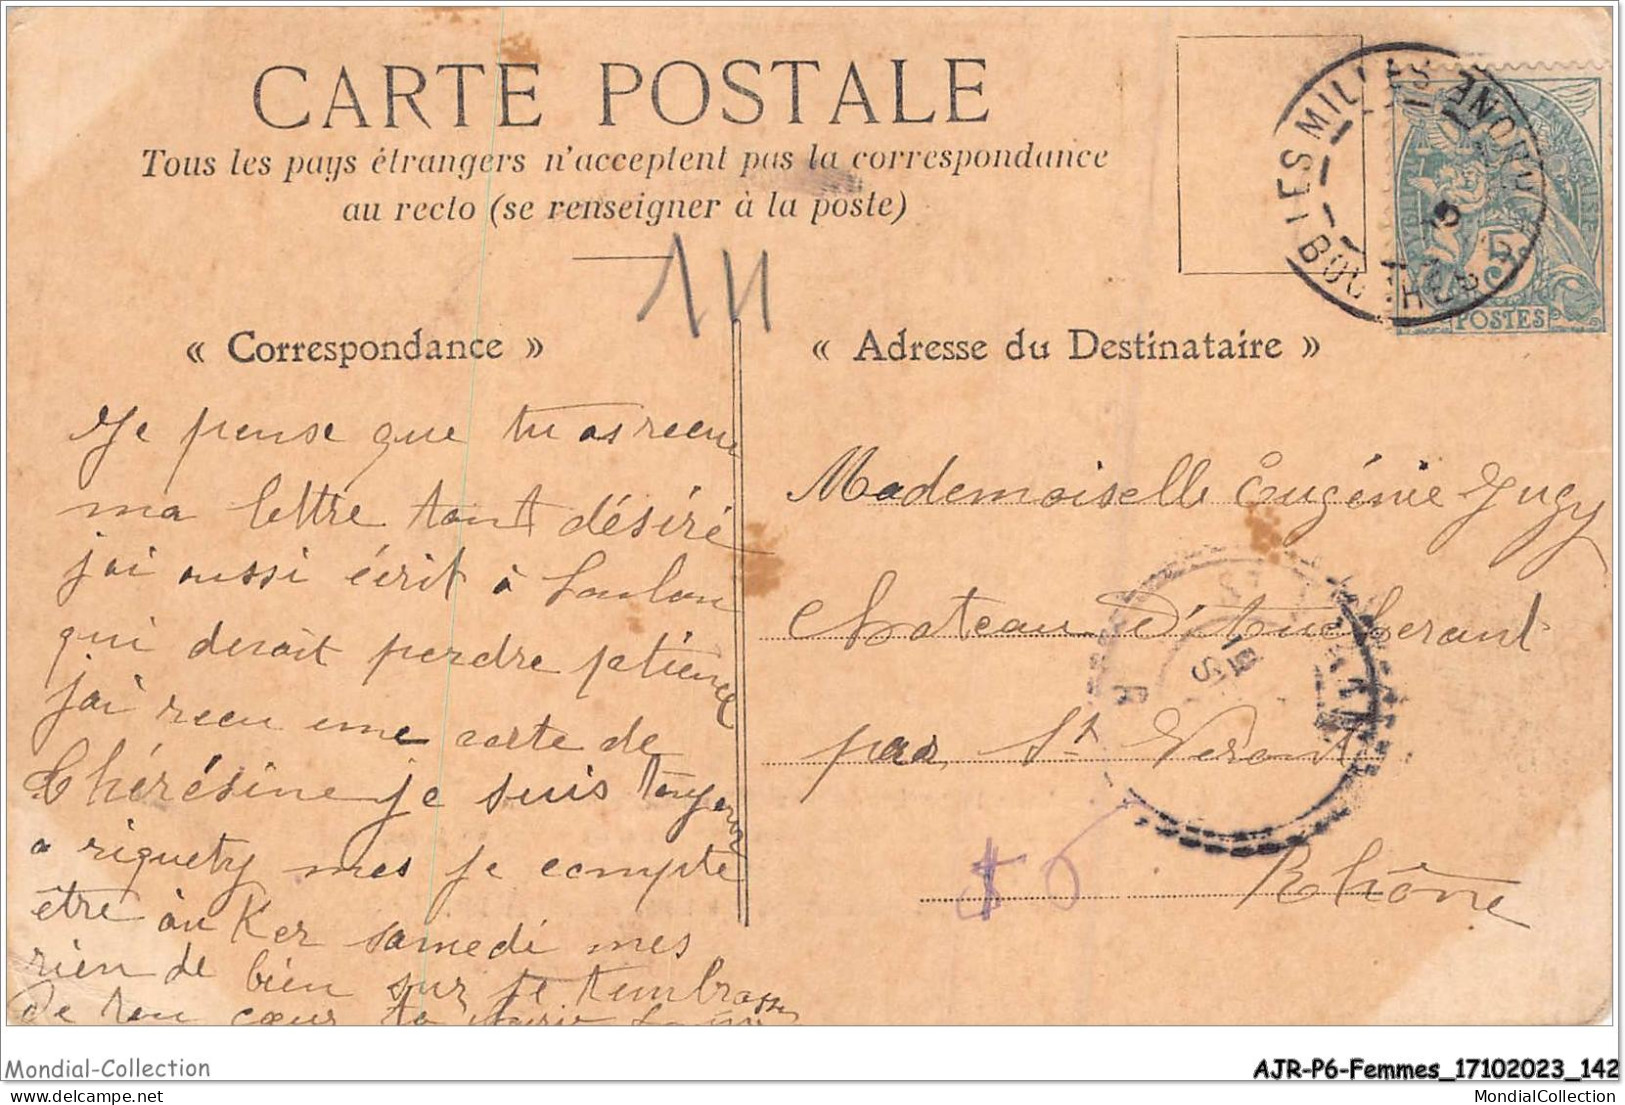 CARTE POSTALE
Tous les pays étrangers n'acceptent pas la correspondance
au recto (se renseigner à la poste)
LES MILLES
BOUCHES
FRANÇAISE
5
POSTES
« Correspondance »
Je pense que tu as recu
ma lettre tant désiré
j'ai aussi écrit à Toulon
qui devait perdre patience
j'ai recu une carte de
Thérésine je suis toujours
a riquety mes je compte
etre àu Ker samedi mes
rien de bien sur je t'embrasse
de ton cœur ta
« Adresse du Destinataire »
Mademoiselle Eugénie Jugy
Chateau
par St Verant
Rhône
Mondial-Collection
AJR-P6-Femmes_17102023_142
MondialCollection